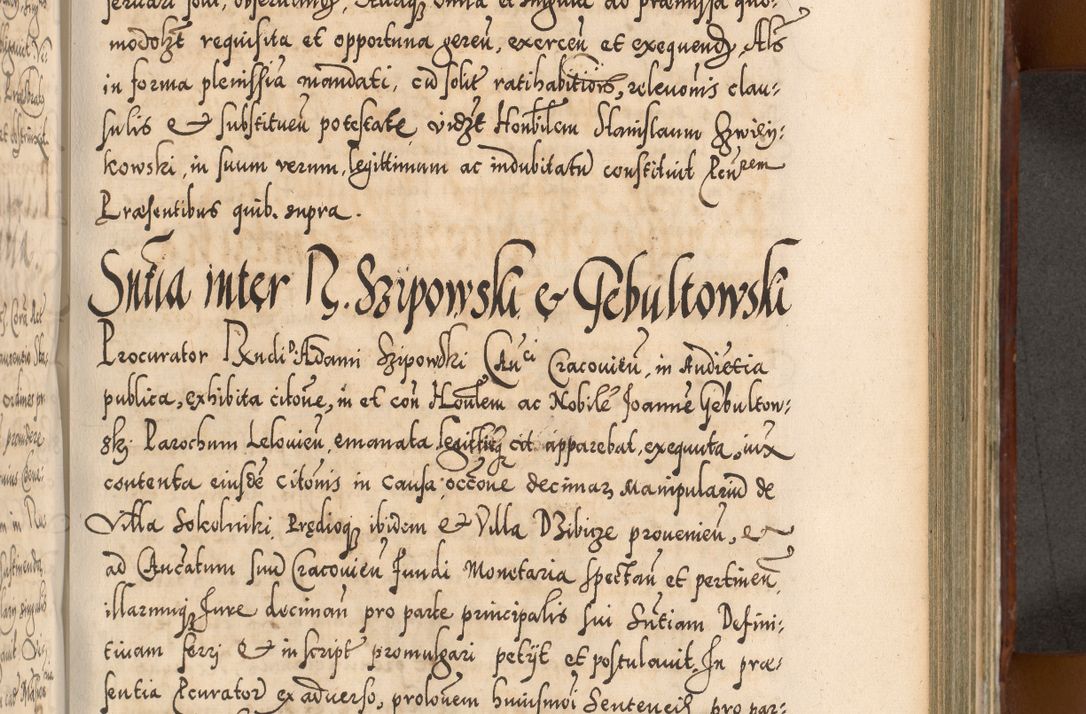 servari soli, observandis, Aliaq omnia et singula ad præmissa quo-
modolzt requisita et opportuna gereñ, exerceñ et exequend, Als
in forma plenissia mandati, cū solit ratihabitiois, relevonis clau-
sulis & substitueñ potestate, vidzt Honbilem Stanislaum Zwiey-
kowski, in suum verum, legittimum ac indubitatū constituit Pcurem
Præsentibus quib. supra.
Sntia inter R. Szipowski & Gebultowski
Procurator Rndi D. Adami Szipowski Canci Cracovieñ, in Audietia
publica, exhibita citone, in et con Honlem ac Nobile Joanne Gebultow-
ski Parochum Lelovieñ, emanata, legittieq cit apparebat, exequuta, iux
contenta eiusde citonis in causa, occone decimar Manipulariū de
Villa Sokolniki, Prędioq ibidem & Villa Dzibize provenieñ, et
ad Canoatum suū Cracovieñ Fundi Monetaria spectañ et pertineñ
illarumq Jure decimañ pro parte principalis sui Sntiam Defini-
tivam ferri & in script promulgari petijt et postulavit. In præ-
sentia Pcurator ex adverso, prolonem huiusmoi Sentencij pro par-